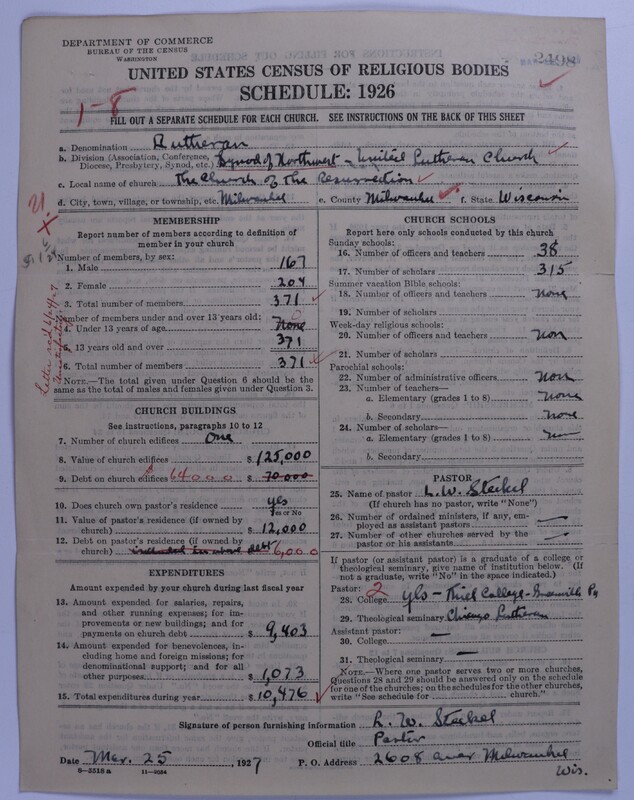 DEPARTMENT OF COMMERCE
BUREAU OF THE CENSUS
WASHINGTON
2498
UNITED STATES CENSUS OF RELIGIOUS BODIES
SCHEDULE: 1926
1-8
FILL OUT A SEPARATE SCHEDULE FOR EACH CHURCH. SEE INSTRUCTIONS ON THE BACK OF THIS SHEET
a. Denomination Lutheran
b. Division (Association, Conference, Diocese, Presbytery, Synod, etc.) Synod of Northwest - United Lutheran Church
c. Local name of church The Church of the Resurrection
d. City, town, village, or township, etc. Milwaukee e. County Milwaukee f. State Wisconsin
MEMBERSHIP
Report number of members according to definition of
member in your church
Number of members, by sex:
1. Male 167
2. Female 204
3. Total number of members 371
Number of members under and over 13 years old:
4. Under 13 years of age None
5. 13 years old and over 371
6. Total number of members 371
NOTE.—The total given under Question 6 should be
same as the total of males and females given under Question 3.
CHURCH BUILDINGS
See instructions, paragraphs 10 to 12
7. Number of church edifices One
8. Value of church edifices $ 125,000
9. Debt on church edifices $ 64000 $ 70.000
10. Does church own pastor's residence yes
Yes or No
11. Value of pastor's residence (if owned by
church) $ 12,000
12. Debt on pastor's residence (if owned by
church) included in above debt 6,000
EXPENDITURES
Amount expended by your church during last fiscal year
13. Amount expended for salaries, repairs,
and other running expenses; for im-
provements or new buildings; and for
payments on church debt $ 9,403
14. Amount expended for benevolences, in-
cluding home and foreign missions; for
denominational support; and for all
other purposes $ 1,073
15. Total expenditures during year $ 10,476
CHURCH SCHOOLS
Report here only schools conducted by this church
Sunday schools:
16. Number of officers and teachers 38
17. Number of scholars 315
Summer vacation Bible schools:
18. Number of officers and teachers None
19. Number of scholars
Week-day religious schools:
20. Number of officers and teachers Non
21. Number of scholars
Parochial schools:
22. Number of administrative officers Non
23. Number of teachers—
a. Elementary (grades 1 to 8) None
b. Secondary None
24. Number of scholars—
a. Elementary (grades 1 to 8)
b. Secondary
PASTOR
25. Name of pastor L. W. Steckel
(If church has no pastor, write "None")
26. Number of ordained ministers, if any, em-
ployed as assistant pastors —
27. Number of other churches served by the
pastor or his assistants —
If pastor (or assistant pastor) is a graduate of a college or
theological seminary, give name of institution below. (If
not a graduate, write "No" in the space indicated.)
Pastor: 2
28. College yes - Thiel College - Greenville Pa
29. Theological seminary Chicago Lutheran
Assistant pastor:
30. College —
31. Theological seminary —
NOTE.—Where one pastor serves two or more churches,
Questions 28 and 29 should be answered only on the schedule
for one of the churches; on the schedules for the other churches,
write "See schedule for church."
Signature of person furnishing information L. W. Steckel
Official title Pastor
Date Mar. 25, 1927 P. O. Address 2608 Milwaukee
Wis.
8—5518 a 11—9054